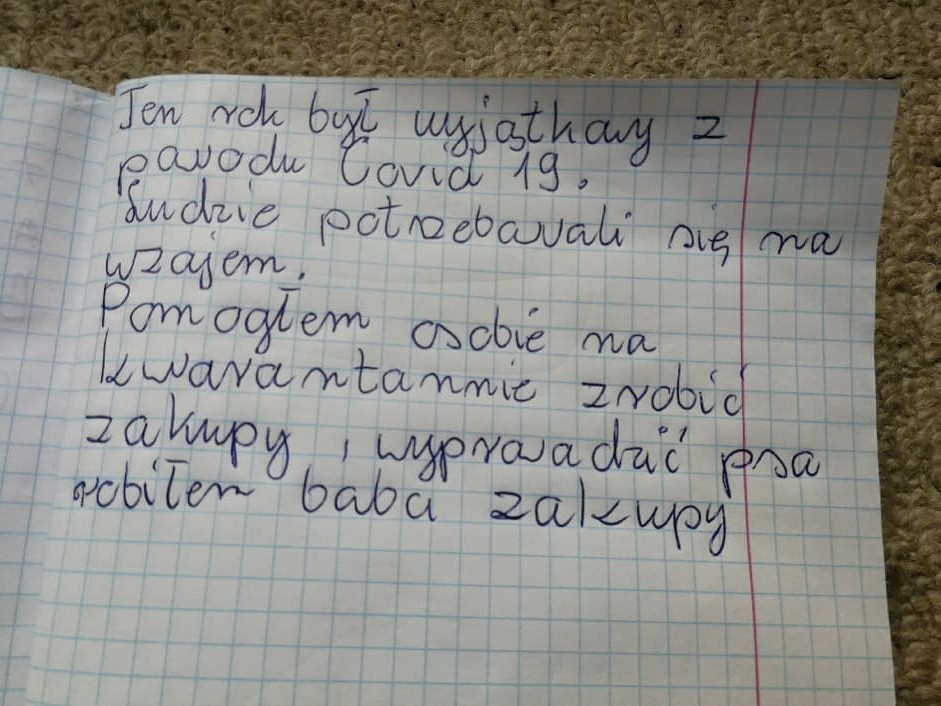 Ten rok był wyjątkowy z
powodu Covid 19.
Ludzie potrzebowali się na
wzajem.
Pomogłem osobie na
kwarantannie zrobić
zakupy, wyprowadzić psa
robiłem baba zakupy